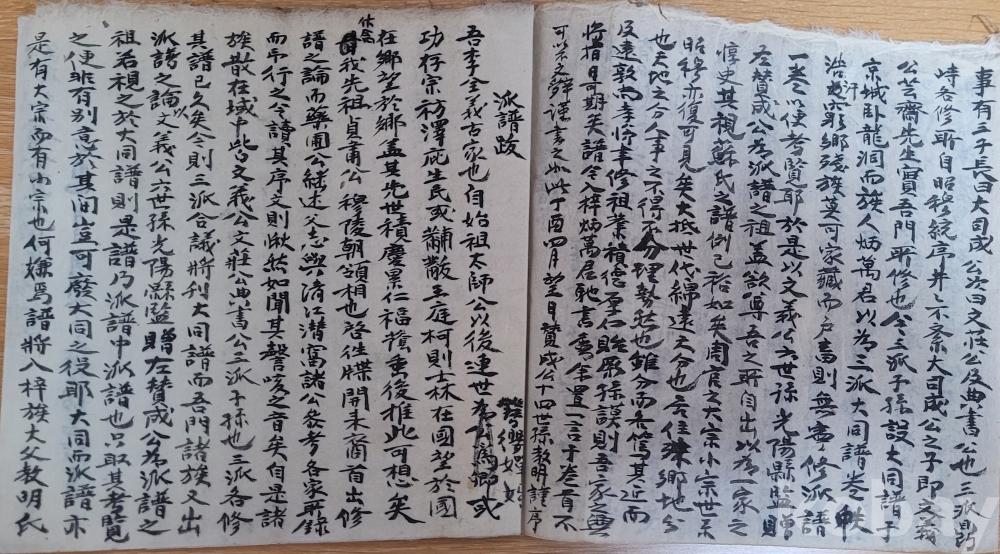 事有三子長曰大司成公次曰文莊公及典書公也三派鼎
峙各修所自昭穆統序井井不紊大司成公之子卽文義
公公齋先生實吾門所修也今三派子孫設大同譜于
京城臥龍洞而族人炳萬君以爲三派大同譜卷帙
浩汗窮鄕殘族莫可家藏而戶蓄則無寧修派譜
一卷以便考覽耶於是以文義公六世孫光陽縣監贈
左贊成公爲派譜之祖盖欲尊吾之所自出以爲一家之
惇史其視蘇氏之譜例已裕如矣周官之大宗小宗世系
昭穆亦復可見矣大抵世代綿遠天分也居住殊鄕地分
也天地之分人事之不得不分理勢然也雖分而不篤其近而
及遠敦尙孝悌聿修祖業積德孕仁貽厥孫謨則吾家之興
將指日可期矣譜今入梓炳萬居馳書索余置一言于卷首不
可以不文辭謹書之如此丁酉四月望日贊成公十四世孫敎明謹序
派譜跋
吾李全義古家也自始祖太師公以後連世簪纓或
功存宗祊澤庇生民或黼黻王庭柯則士林在國望於國
在鄕望於鄕盖其先世積慶累仁福蔭垂後推此可想矣
我先祖貞肅公穆陵朝領相也啓往牒開來裔首出修
譜之論而藥圃公繼述父志與淸江潛窩諸公參考各家所錄
而印行之今讀其序文則愀然如聞其謦咳之音矣自是諸
族散在域中此皆文義公文莊公典書公三派子孫也三派各修
其譜已久矣今則三派合議將刊大同譜而吾門諸族又出
派譜之論以文義公六世孫光陽縣監贈左贊成公爲派譜之
祖若視之於大同譜則是譜乃派譜中派譜也只取其考覽
之便非有別意於其間豈可廢大同之役耶大同而派譜亦
是有大宗而有小宗也何嫌焉譜將入梓族大父敎明氏
ebay